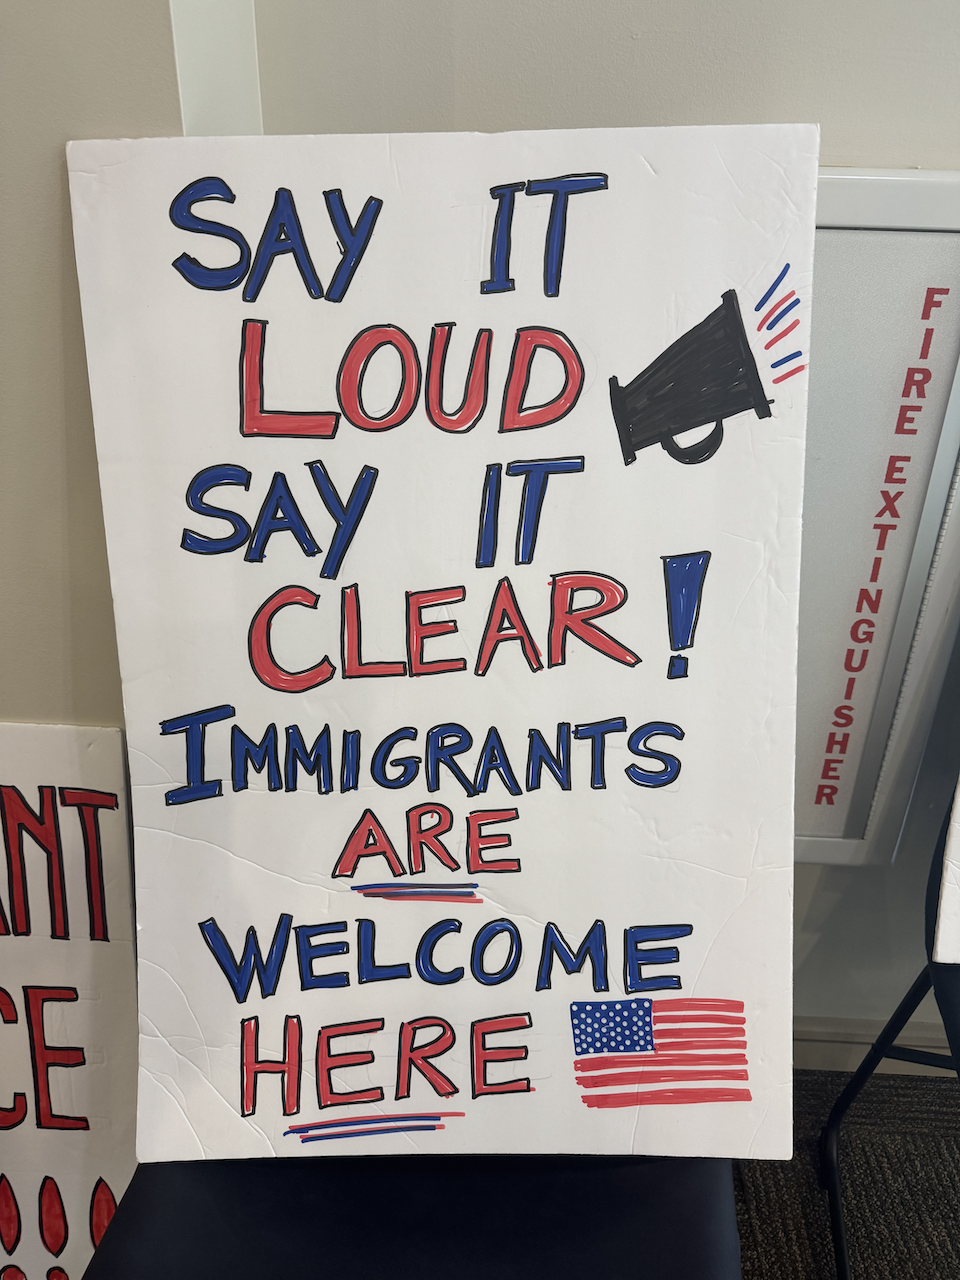 SAY IT
LOUD
SAY IT
CLEAR!
IMMIGRANTS
ARE
WELCOME
HERE
FIRE EXTINGUISHER